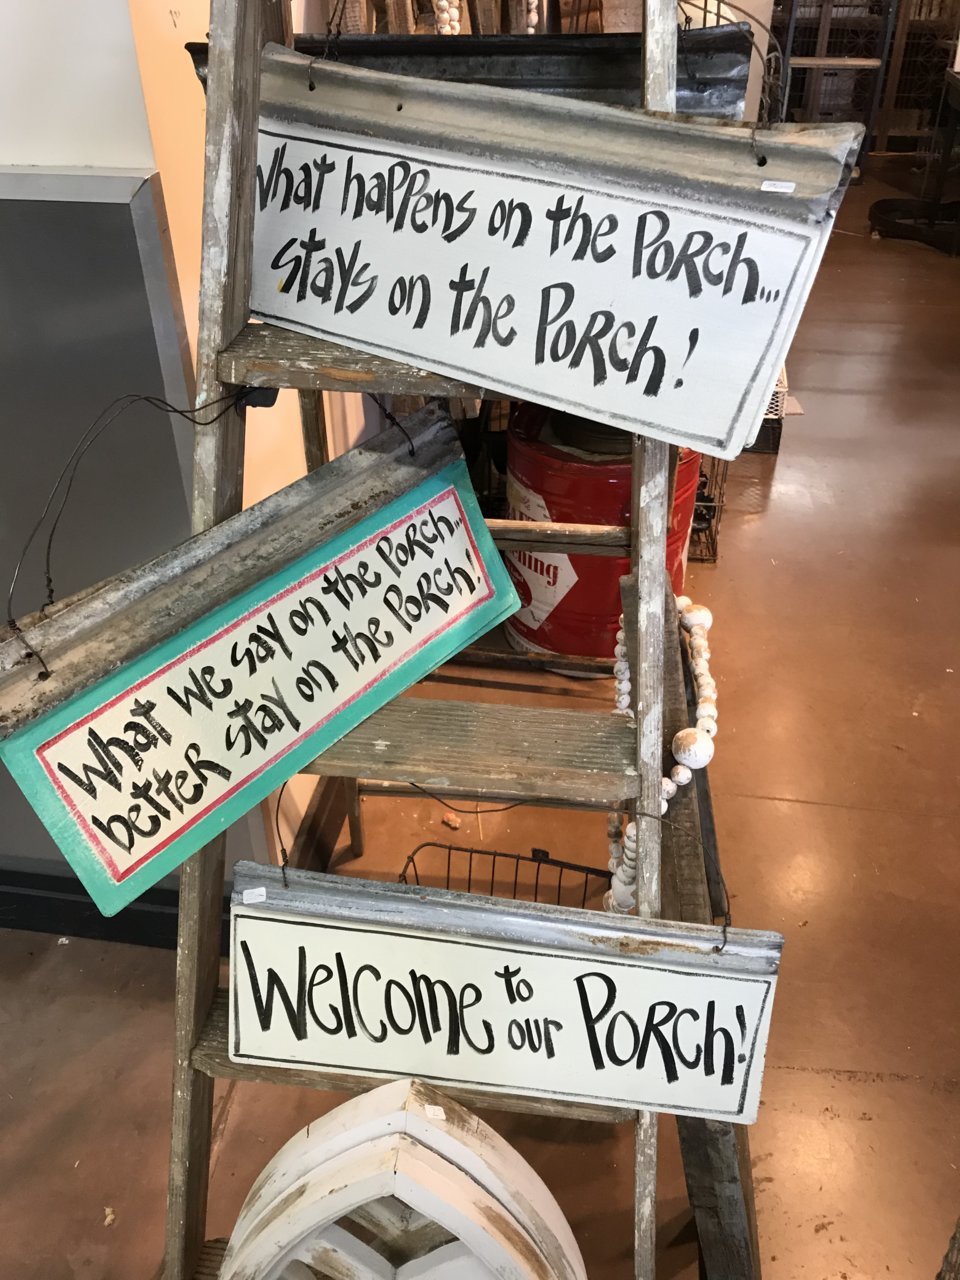 What happens on the PORCh...
stays on the PORCh!
What we say on the PORCh...
better stay on the PORCh!
Welcome to our PORCh!